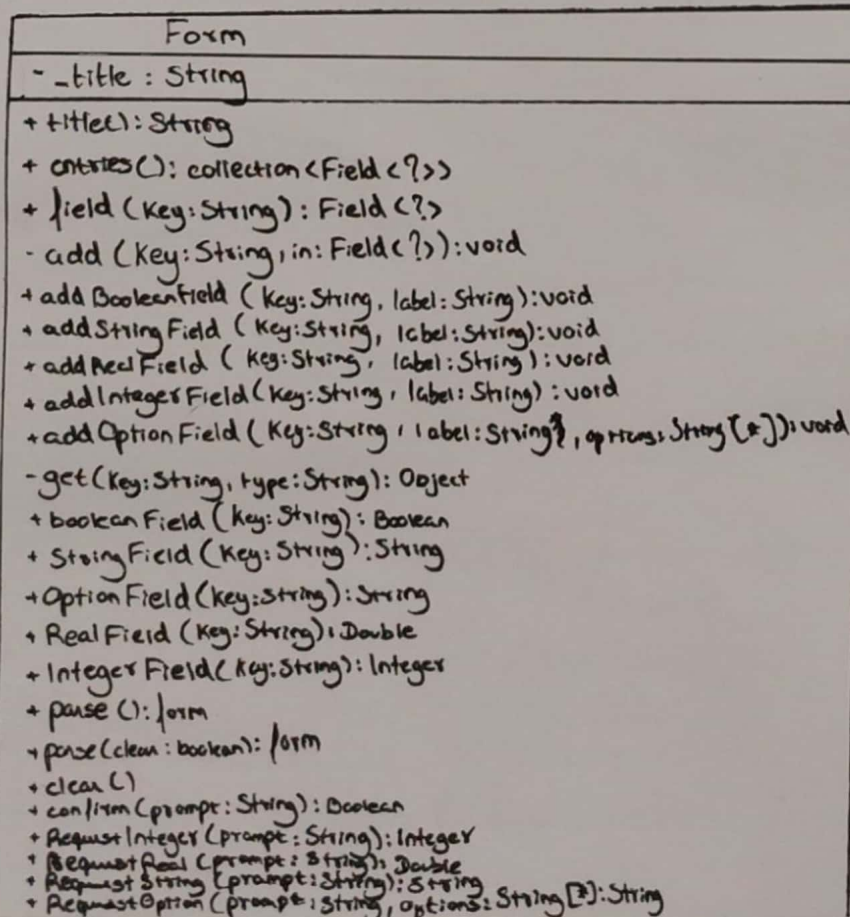 Form
- _title : String
+ title() : String
+ entries() : collection <Field <?>>
+ field (Key: String) : Field <?>
- add (Key: String, in: Field <?>) : void
+ add BooleanField (Key: String, label: String) : void
+ addString Field (Key: String, label: String) : void
+ addReal Field (Key: String, label: String) : void
+ addInteger Field (Key: String, label: String) : void
+ add Option Field (Key: String, label: String, options: String [*]) : void
- get (Key: String, type: String) : Object
+ boolean Field (Key: String) : Boolean
+ String Field (Key: String) : String
+ Option Field (Key: String) : String
+ Real Field (Key: String) : Double
+ Integer Field (Key: String) : Integer
+ parse () : form
+ parse (clean : boolean) : form
+ clear ()
+ confirm (prompt : String) : Boolean
+ Request Integer (prompt : String) : Integer
+ Request Real (prompt : String) : Double
+ Request String (prompt : String) : String
+ Request Option (prompt : String, options : String [*] : String